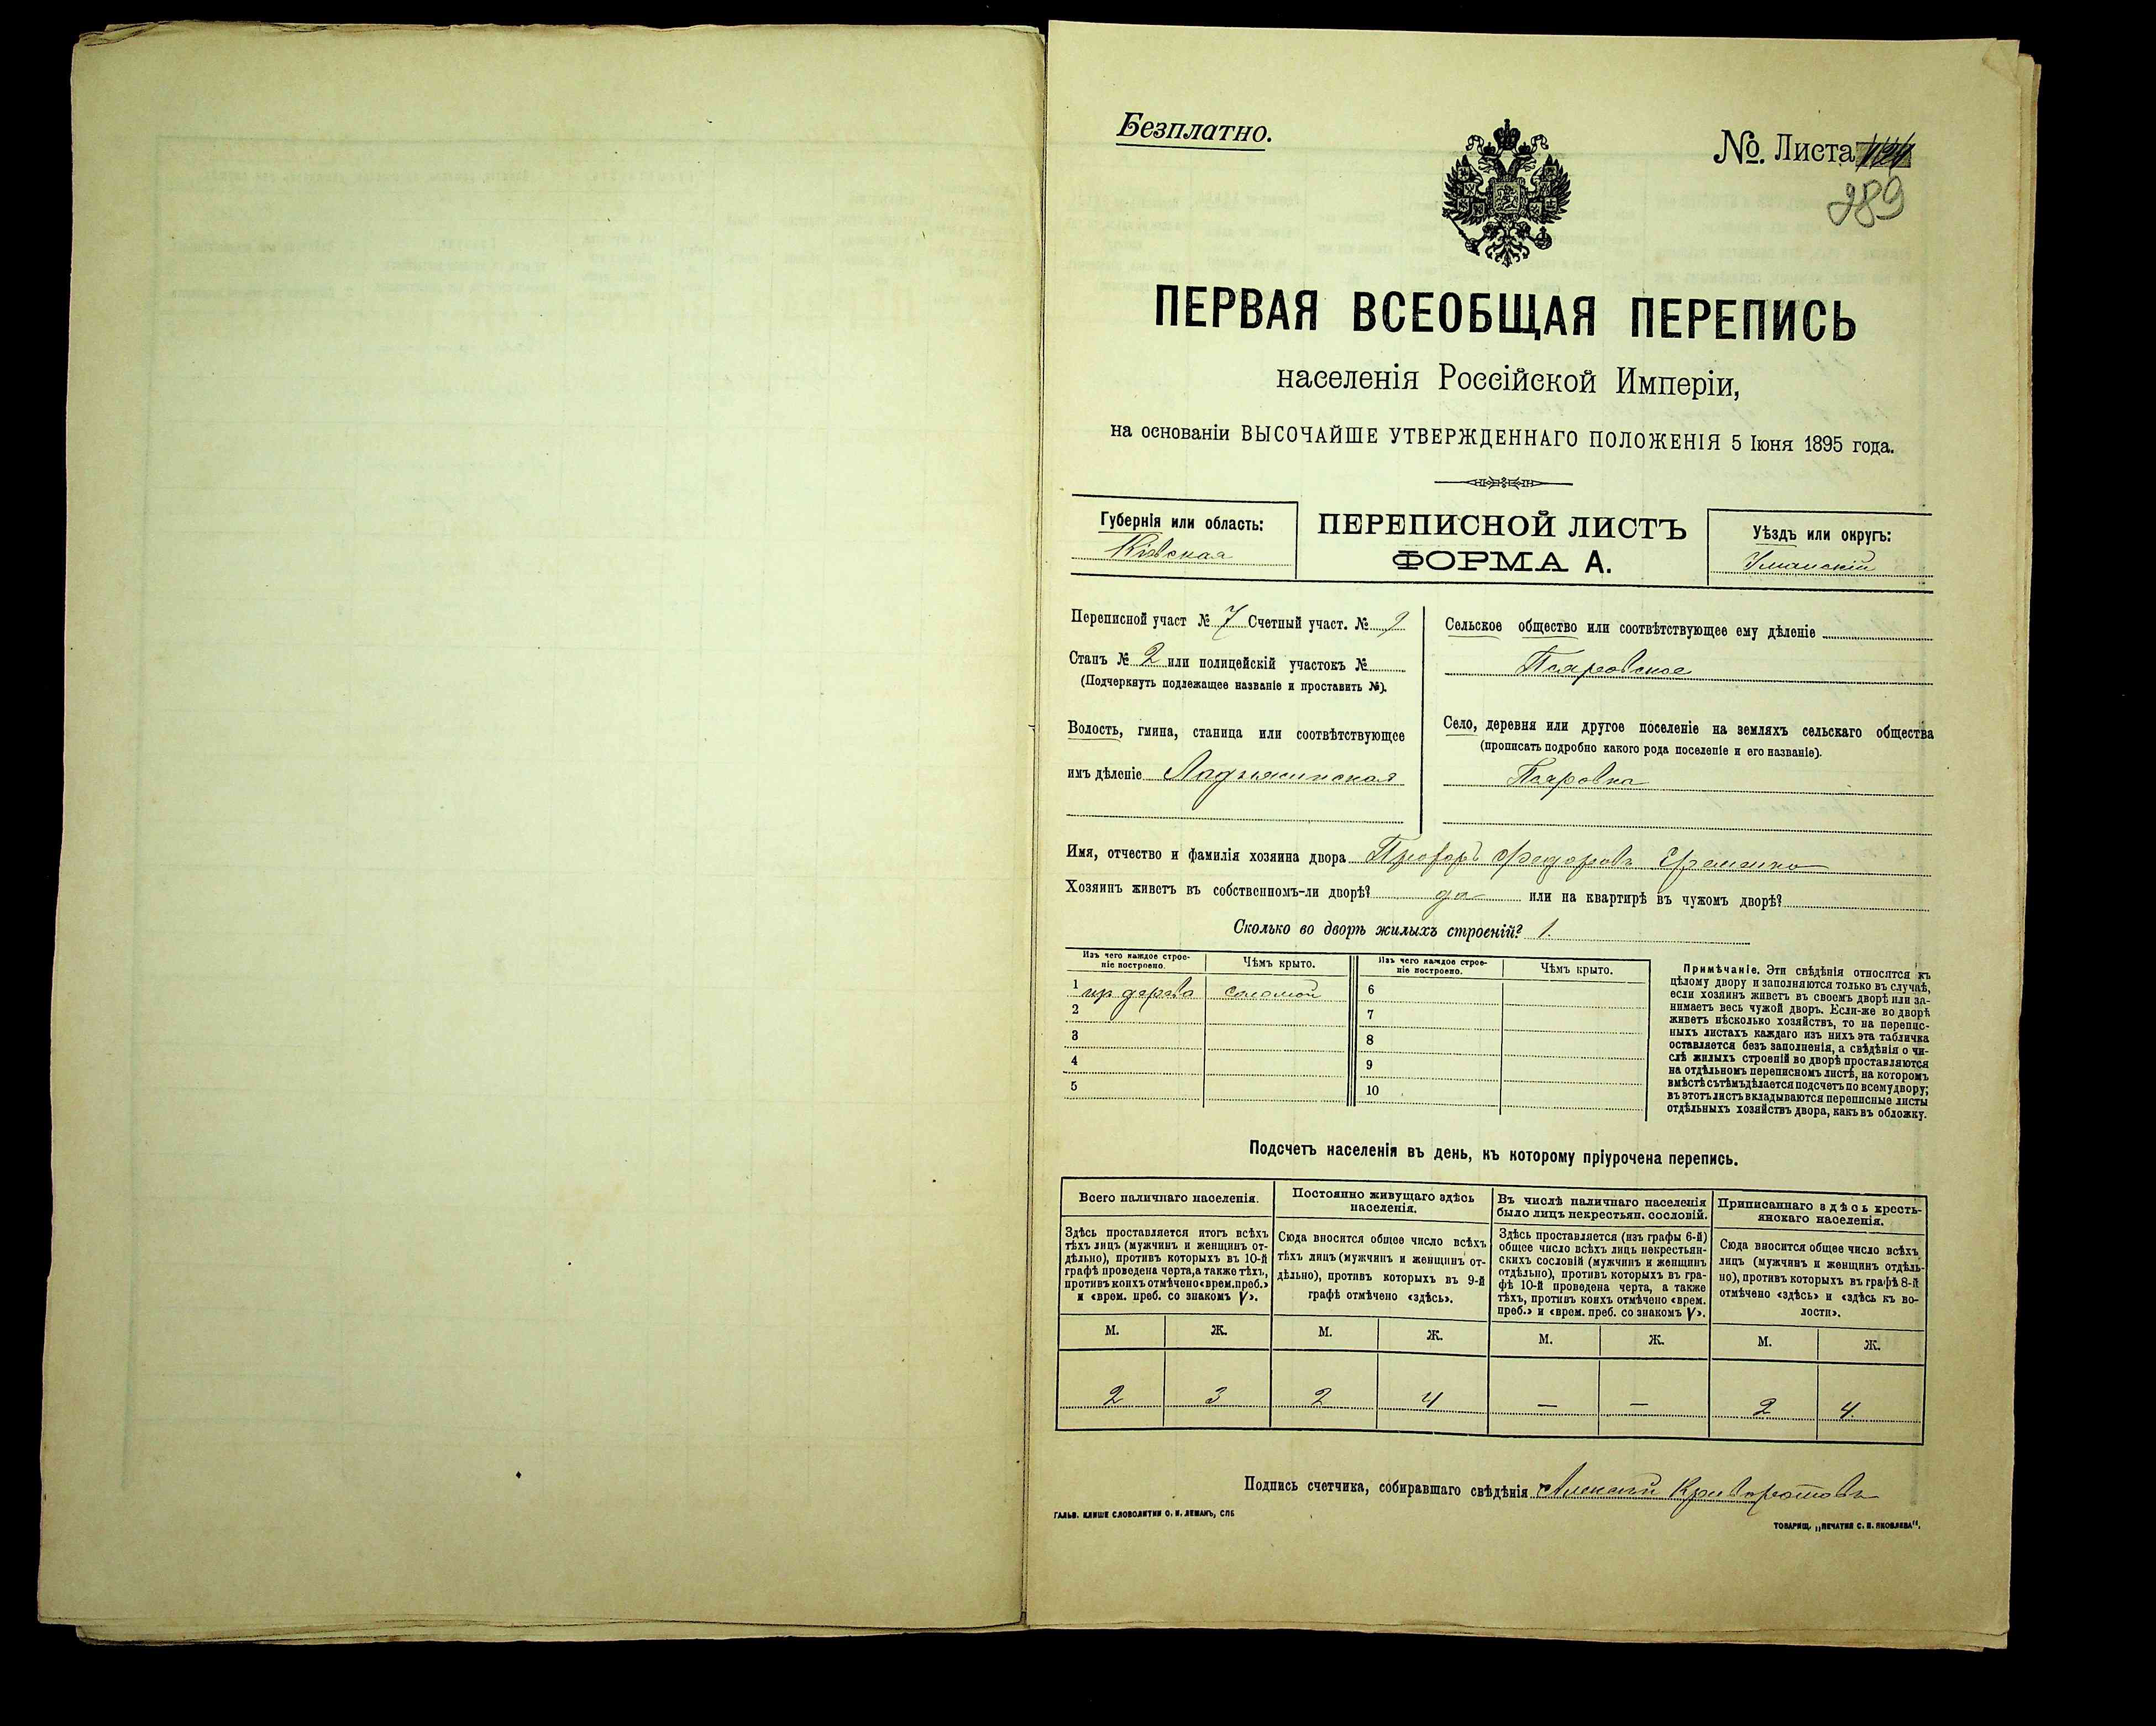 Безплатно.
№. Листа
289
ПЕРВАЯ ВСЕОБЩАЯ ПЕРЕПИСЬ
населенія Россійской Имперіи,
на основаніи ВЫСОЧАЙШЕ УТВЕРЖДЕННАГО ПОЛОЖЕНІЯ 5 Іюня 1895 года.
Губернія или область:
Кіевская
ПЕРЕПИСНОЙ ЛИСТЪ
ФОРМА А.
Уѣздъ или округъ:
Уманскій
Переписной участ № 7 Счетный участ. №
Станъ № 2 или полицейскій участокъ №
(Подчеркнуть подлежащее названіе и проставить №).
Волость, гмина, станица или соотвѣтствующее
имъ дѣленіе Ладыжинская
Сельское общество или соотвѣтствующее ему дѣленіе
Псяровское
Село, деревня или другое поселеніе на земляхъ сельскаго общества
(прописать подробно какого рода поселеніе и его названіе).
Псяровка
Имя, отчество и фамилія хозяина двора Прохоръ Федоровъ Еременко
Хозяинъ живетъ въ собственномъ-ли дворѣ? да или на квартирѣ въ чужомъ дворѣ?
Сколько во дворѣ жилыхъ строеній? 1.
Изъ чего каждое строе-
ніе построено.
Чѣмъ крыто.
Изъ чего каждое строе-
ніе построено.
Чѣмъ крыто.
1 изъ дерева соломой
2
3
4
5
6
7
8
9
10
Примѣчаніе. Эти свѣдѣнія относятся къ
цѣлому двору и заполняются только въ случаѣ,
если хозяинъ живетъ въ своемъ дворѣ или за-
нимаетъ весь чужой дворъ. Если-же во дворѣ
живетъ нѣсколько хозяйствъ, то на перепис-
ныхъ листахъ каждаго изъ нихъ эта табличка
оставляется безъ заполненія, а свѣдѣнія о чи-
слѣ жилыхъ строеній во дворѣ проставляются
на отдѣльномъ переписномъ листѣ, на которомъ
вмѣстѣ съ тѣмъ дѣлается подсчетъ по всему двору;
въ этотъ листъ вкладываются переписные листы
отдѣльныхъ хозяйствъ двора, какъ въ обложку.
Подсчетъ населенія въ день, къ которому пріурочена перепись.
Всего наличнаго населенія.
Здѣсь проставляется итогъ всѣхъ
тѣхъ лицъ (мужчинъ и женщинъ от-
дѣльно), противъ которыхъ въ 10-й
графѣ проведена черта, а также тѣхъ,
противъ коихъ отмѣчено «врем. преб.»
и «врем. преб. со знакомъ V».
Постоянно живущаго здѣсь
населенія.
Сюда вносится общее число всѣхъ
тѣхъ лицъ (мужчинъ и женщинъ от-
дѣльно), противъ которыхъ въ 9-й
графѣ отмѣчено «здѣсь».
Въ числѣ наличнаго населенія
было лицъ некрестьян. сословій.
Здѣсь проставляется (изъ графы 6-й)
общее число всѣхъ лицъ некрестьян-
скихъ сословій (мужчинъ и женщинъ
отдѣльно), противъ которыхъ въ гра-
фѣ 10-й проведена черта, а также
тѣхъ, противъ коихъ отмѣчено «врем.
преб.» и «врем. преб. со знакомъ V».
Приписаннаго здѣсь кресть-
янскаго населенія.
Сюда вносится общее число всѣхъ
лицъ (мужчинъ и женщинъ отдѣль-
но), противъ которыхъ въ графѣ 8-й
отмѣчено «здѣсь» и «здѣсь къ во-
лости».
М. Ж. М. Ж. М. Ж. М. Ж.
2 3 2 4 — — 2 4.
Подпись счетчика, собиравшаго свѣдѣнія Алексѣй Криворотовъ
ГАЛЬВ. КЛИШЕ СЛОВОЛИТНИ О. И. ЛЕМАНЪ, СПБ
ТОВАРИЩ. „ПЕЧАТНЯ С. П. ЯКОВЛЕВА“.